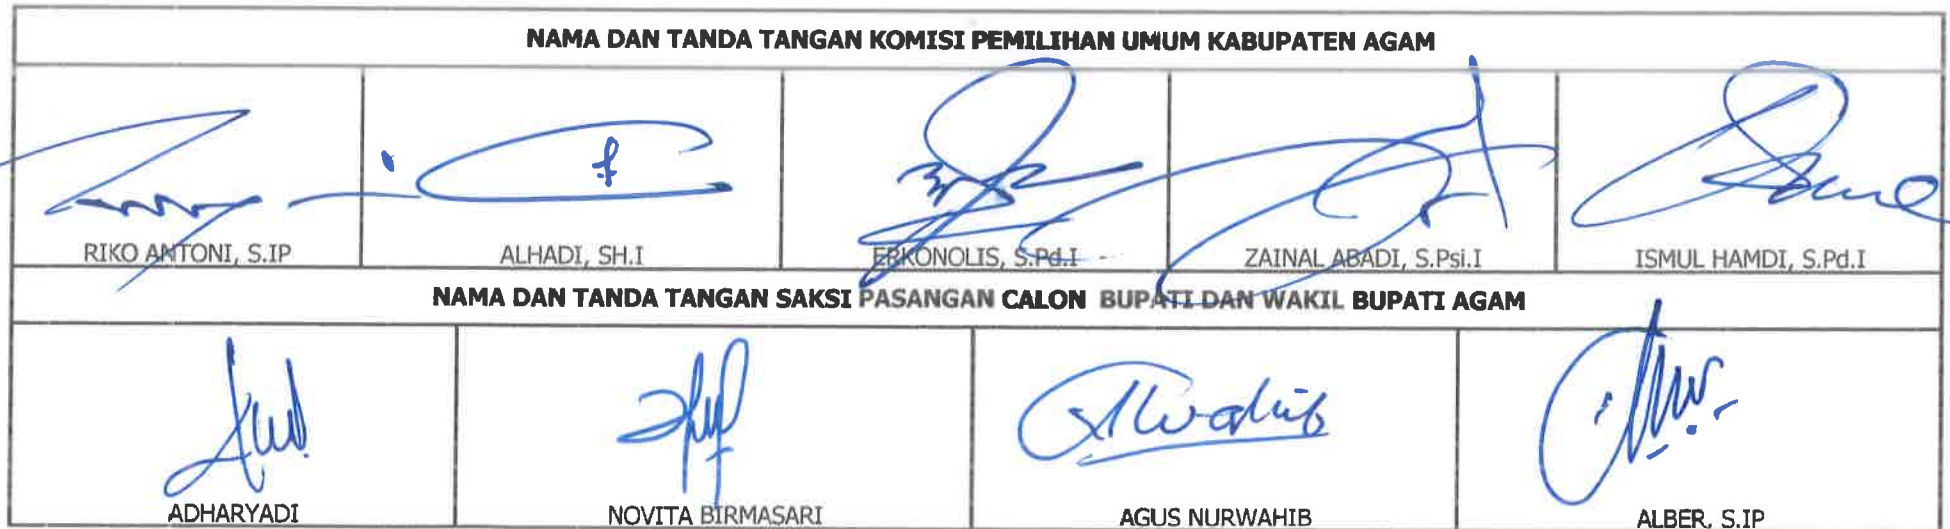 NAMA DAN TANDA TANGAN KOMISI PEMILIHAN UMUM KABUPATEN AGAM
RIKO ANTONI, S.IP ALHADI, SH.I ERKONOLIS, S.Pd.I ZAINAL ABADI, S.Psi.I ISMUL HAMDI, S.Pd.I
NAMA DAN TANDA TANGAN SAKSI PASANGAN CALON BUPATI DAN WAKIL BUPATI AGAM
ADHARYADI NOVITA BIRMASARI AGUS NURWAHIB ALBER, S.IP